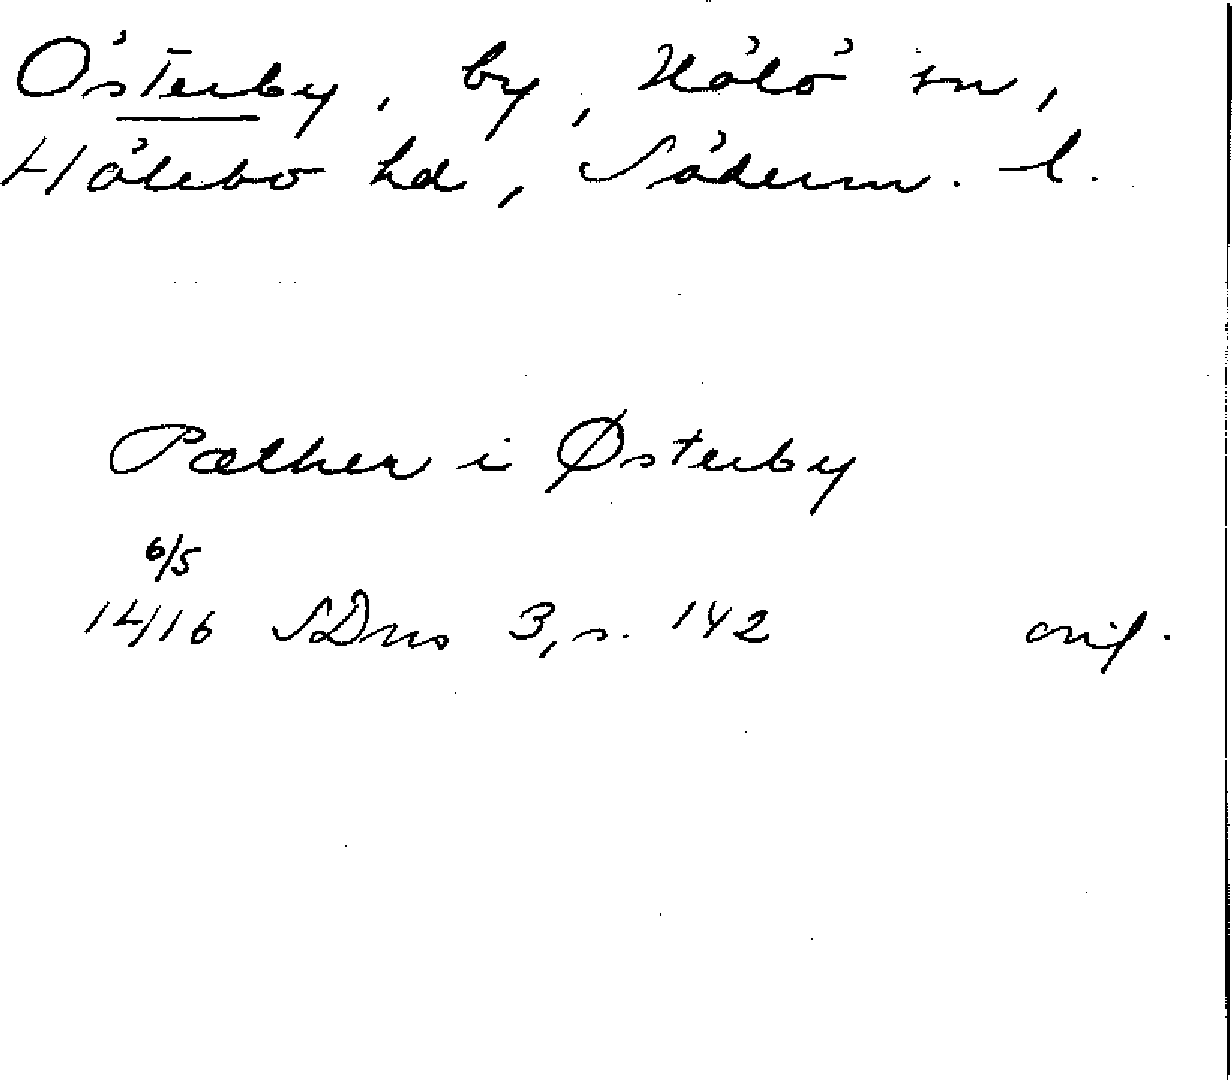 Österby, by, Hölö sn,
Hölebo hd, Söderm. l.
Pæther i Østerby
6/5
1416 SDns 3, s. 142 orig.